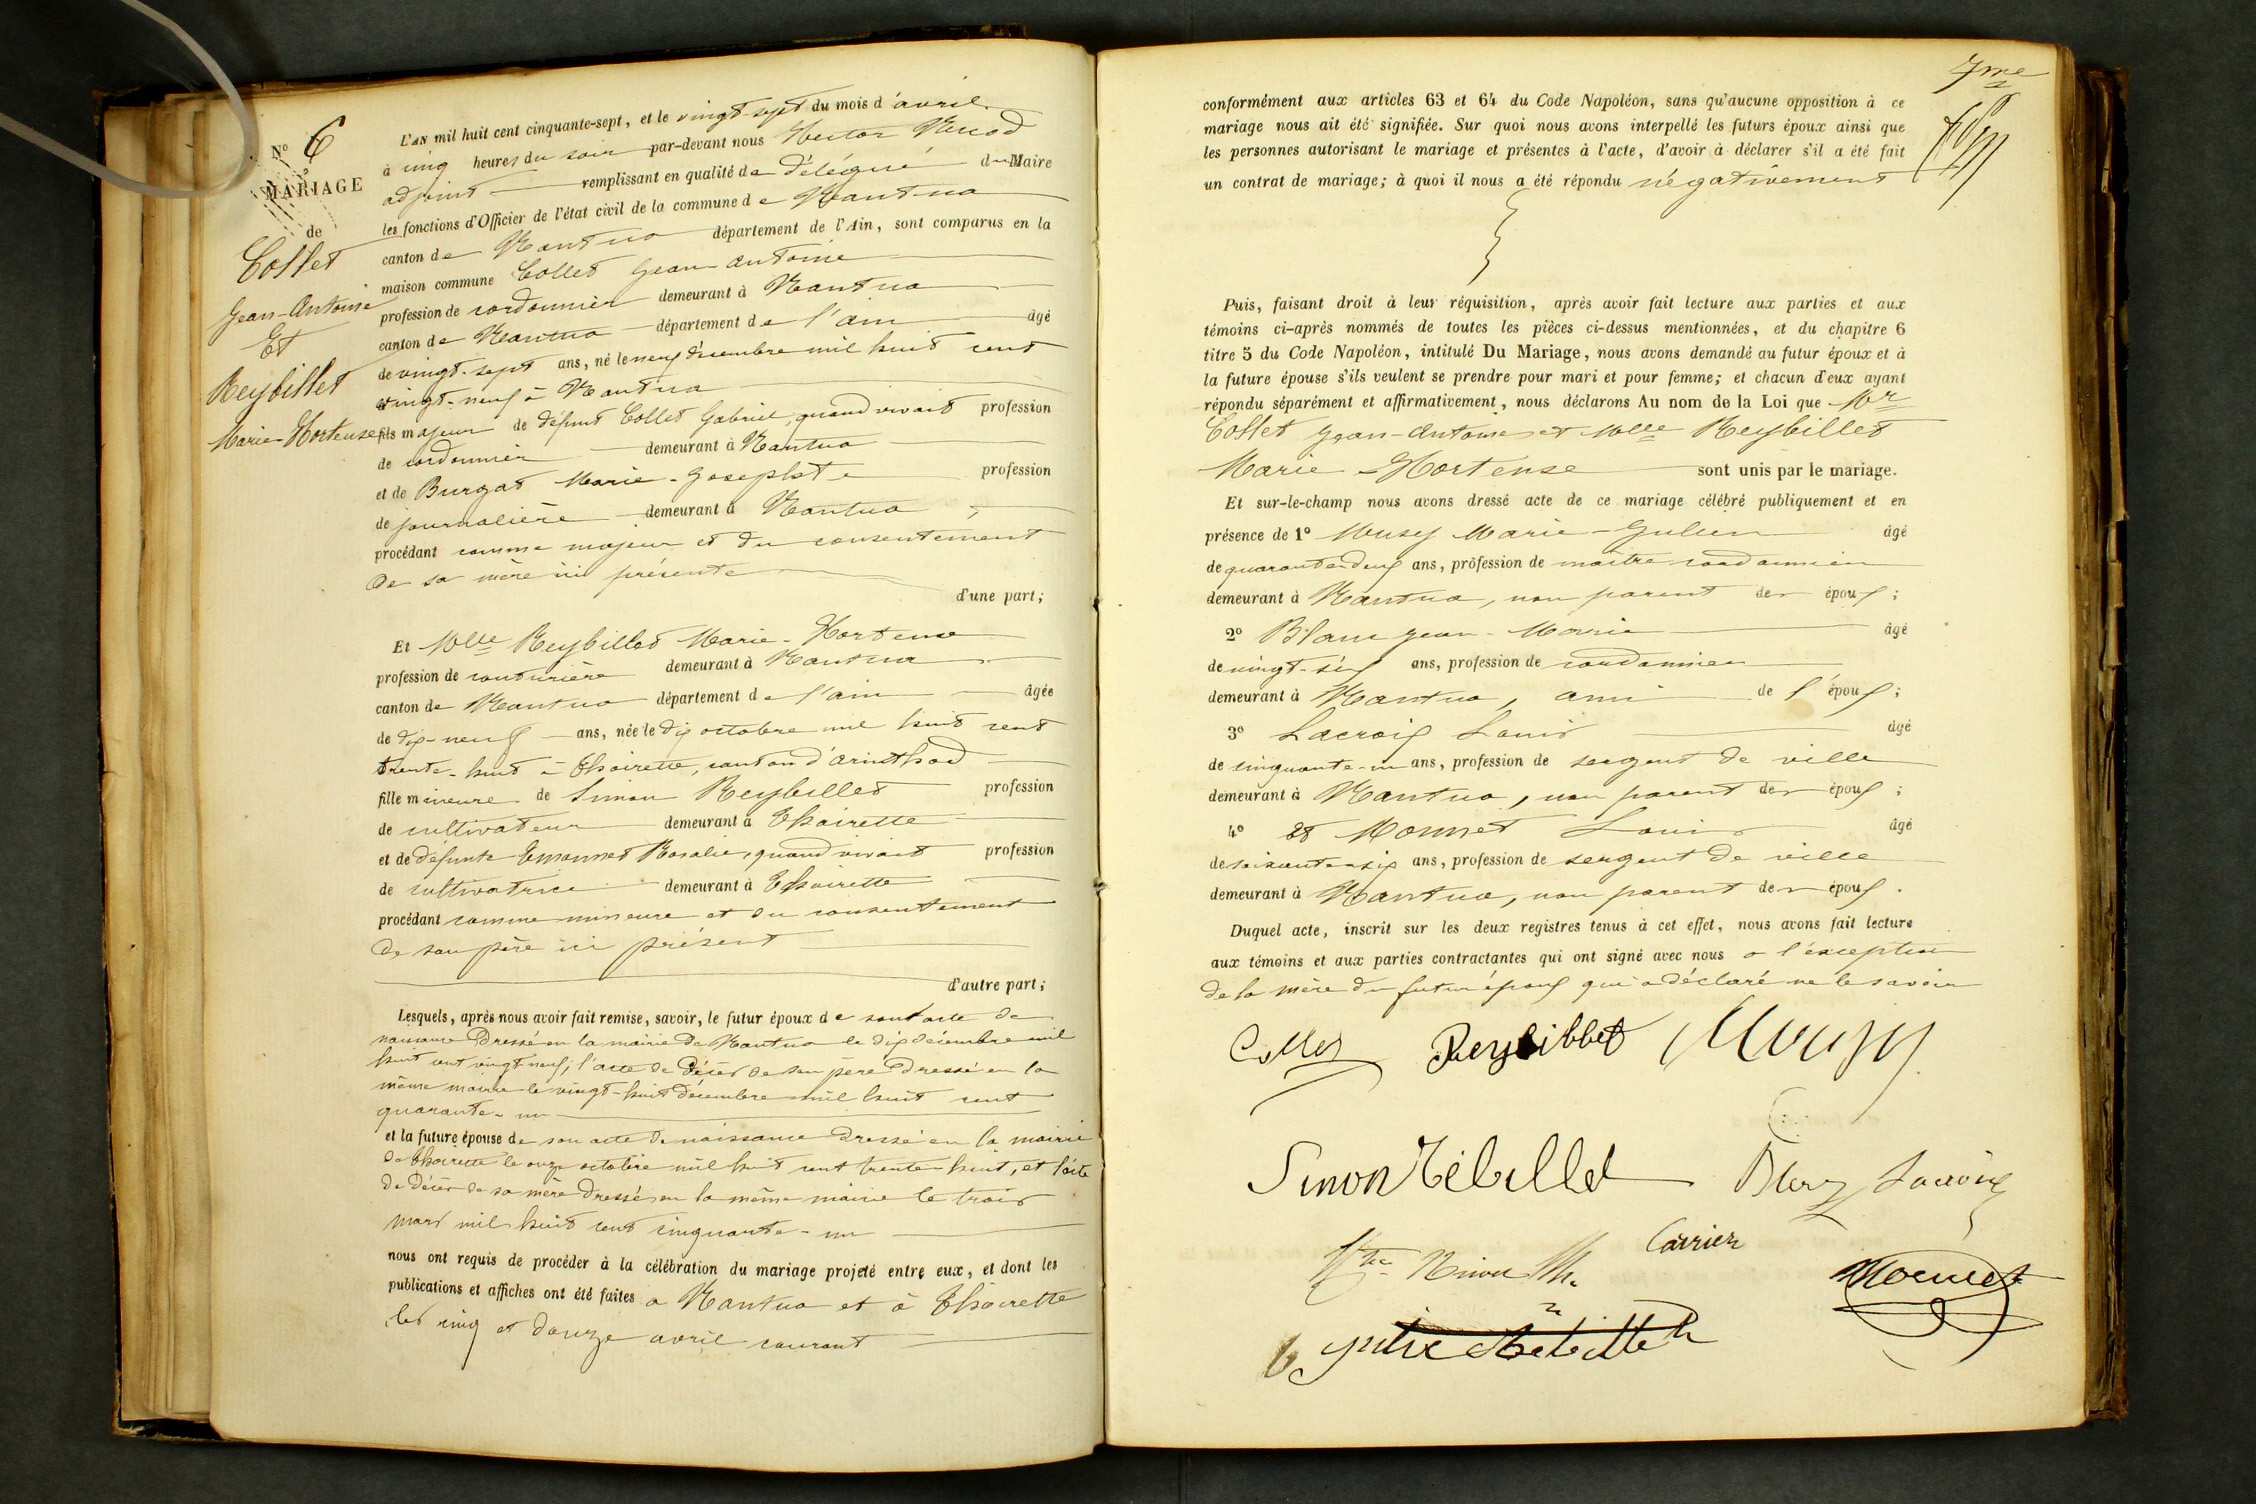 N° 6
MARIAGE
de
Collet
Jean-Antoine
Et
Reybillet
Marie-Hortense
L'AN mil huit cent cinquante-sept, et le vingt-sept du mois d'avril
à cinq heures du soir par-devant nous Hector
adjoint remplissant en qualité de délégué du Maire
les fonctions d'Officier de l'état civil de la commune de Nantua
canton de Nantua département de l'Ain, sont comparus en la
maison commune Collet Jean-Antoine
profession de cordonnier demeurant à Nantua
canton de Nantua département de l'ain âgé
de vingt-sept ans, né le neuf décembre mil huit cent
vingt-neuf à Nantua
fils majeur de défunt Collet Gabriel, quand vivait profession
de cordonnier demeurant à Nantua
et de Burgat Marie-Josephte profession
de journalière demeurant à Nantua,
procédant comme majeur et du consentement
de sa mère ici présente
d'une part;
Et Melle Reybillet Marie-Hortense
profession de couturière demeurant à Nantua
canton de Nantua département de l'ain âgée
de dix-neuf ans, née le dix octobre mil huit cent
trente-huit à Thoirette, canton d'arinthod
fille mineure de Simon Reybillet profession
de cultivateur demeurant à Thoirette
et de défunte Rosalie, quand vivait profession
de cultivatrice demeurant à Thoirette
procédant comme mineure et du consentement
de son père ici présent
d'autre part;
Lesquels, après nous avoir fait remise, savoir, le futur époux de son acte de
naissance dressé en la mairie de Nantua le dix décembre mil
huit cent vingt-neuf, l'acte de décès de son père dressé en la
même mairie le vingt-huit décembre mil huit cent
quarante-un
et la future épouse de son acte de naissance dressé en la mairie
de Thoirette le onze octobre mil huit cent trente-huit, et l'acte
de décès de sa mère dressé en la même mairie le trois
mars mil huit cent cinquante-un
nous ont requis de procéder à la célébration du mariage projeté entre eux, et dont les
publications et affiches ont été faites a Nantua et à Thoirette
les cinq et douze avril courant
7me
conformément aux articles 63 et 64 du Code Napoléon, sans qu'aucune opposition à ce
mariage nous ait été signifiée. Sur quoi nous avons interpellé les futurs époux ainsi que
les personnes autorisant le mariage et présentes à l'acte, d'avoir à déclarer s'il a été fait
un contrat de mariage; à quoi il nous a été répondu négativement
Puis, faisant droit à leur réquisition, après avoir fait lecture aux parties et aux
témoins ci-après nommés de toutes les pièces ci-dessus mentionnées, et du chapitre 6
titre 5 du Code Napoléon, intitulé Du Mariage, nous avons demandé au futur époux et à
la future épouse s'ils veulent se prendre pour mari et pour femme; et chacun d'eux ayant
répondu séparément et affirmativement, nous déclarons Au nom de la Loi que Mr
Collet Jean-Antoine et Melle Reybillet
Marie Hortense sont unis par le mariage.
Et sur-le-champ nous avons dressé acte de ce mariage célébré publiquement et en
présence de 1° Musy Marie-Julien âgé
de quarante-deux ans, profession de maître cordonnier
demeurant à Nantua, non parent des époux;
2° Blanc Jean-Marie âgé
de vingt-six ans, profession de cordonnier
demeurant à Nantua, ami de l'époux;
3° Lacroix Louis âgé
de cinquante-un ans, profession de sergent de ville
demeurant à Nantua, non parent des époux;
4° et Monnet Louis âgé
de soixante-six ans, profession de sergent de ville
demeurant à Nantua, non parent des époux.
Duquel acte, inscrit sur les deux registres tenus à cet effet, nous avons fait lecture
aux témoins et aux parties contractantes qui ont signé avec nous a l'exception
de la mère du futur époux qui a déclaré ne le savoir
Collet Reybibbet Mousy
Simon Rébillet Blanc Lacroix
Carrier
Monnet